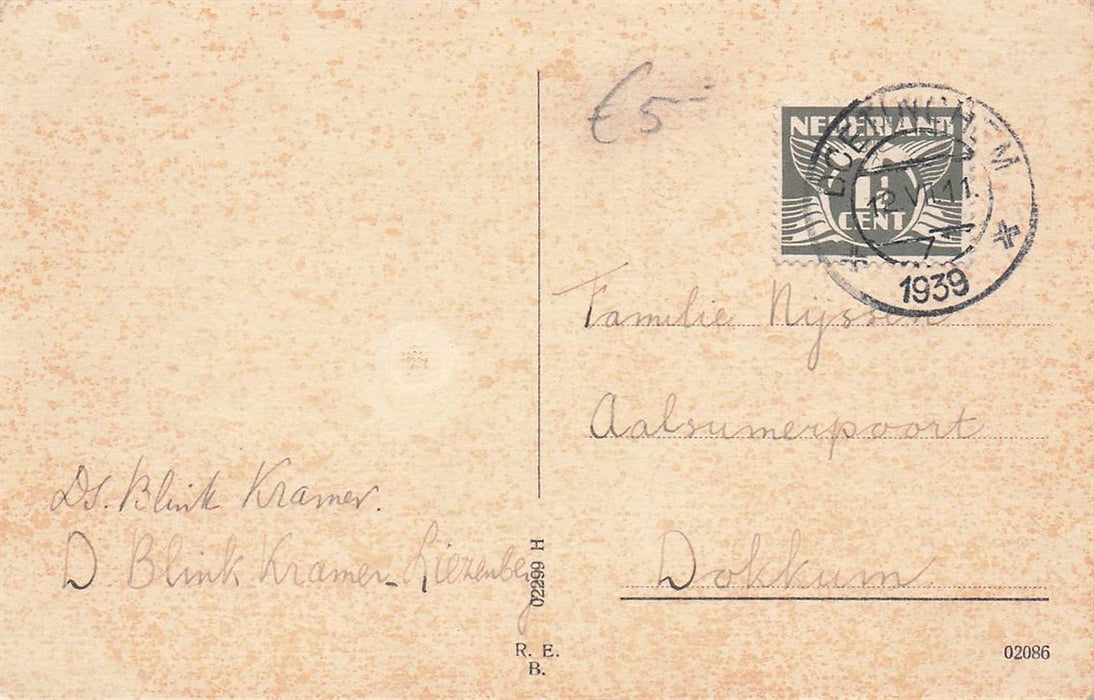 €5-
NEDERLAND
1½
CENT
DOETINCHEM
12.VII.11.
1
1939
Familie Nijssen
Aalsumerpoort
Dokkum
Ds. Blink Kramer.
D Blink Kramer-Liezenberg
02299 H
R. E.
B.
02086